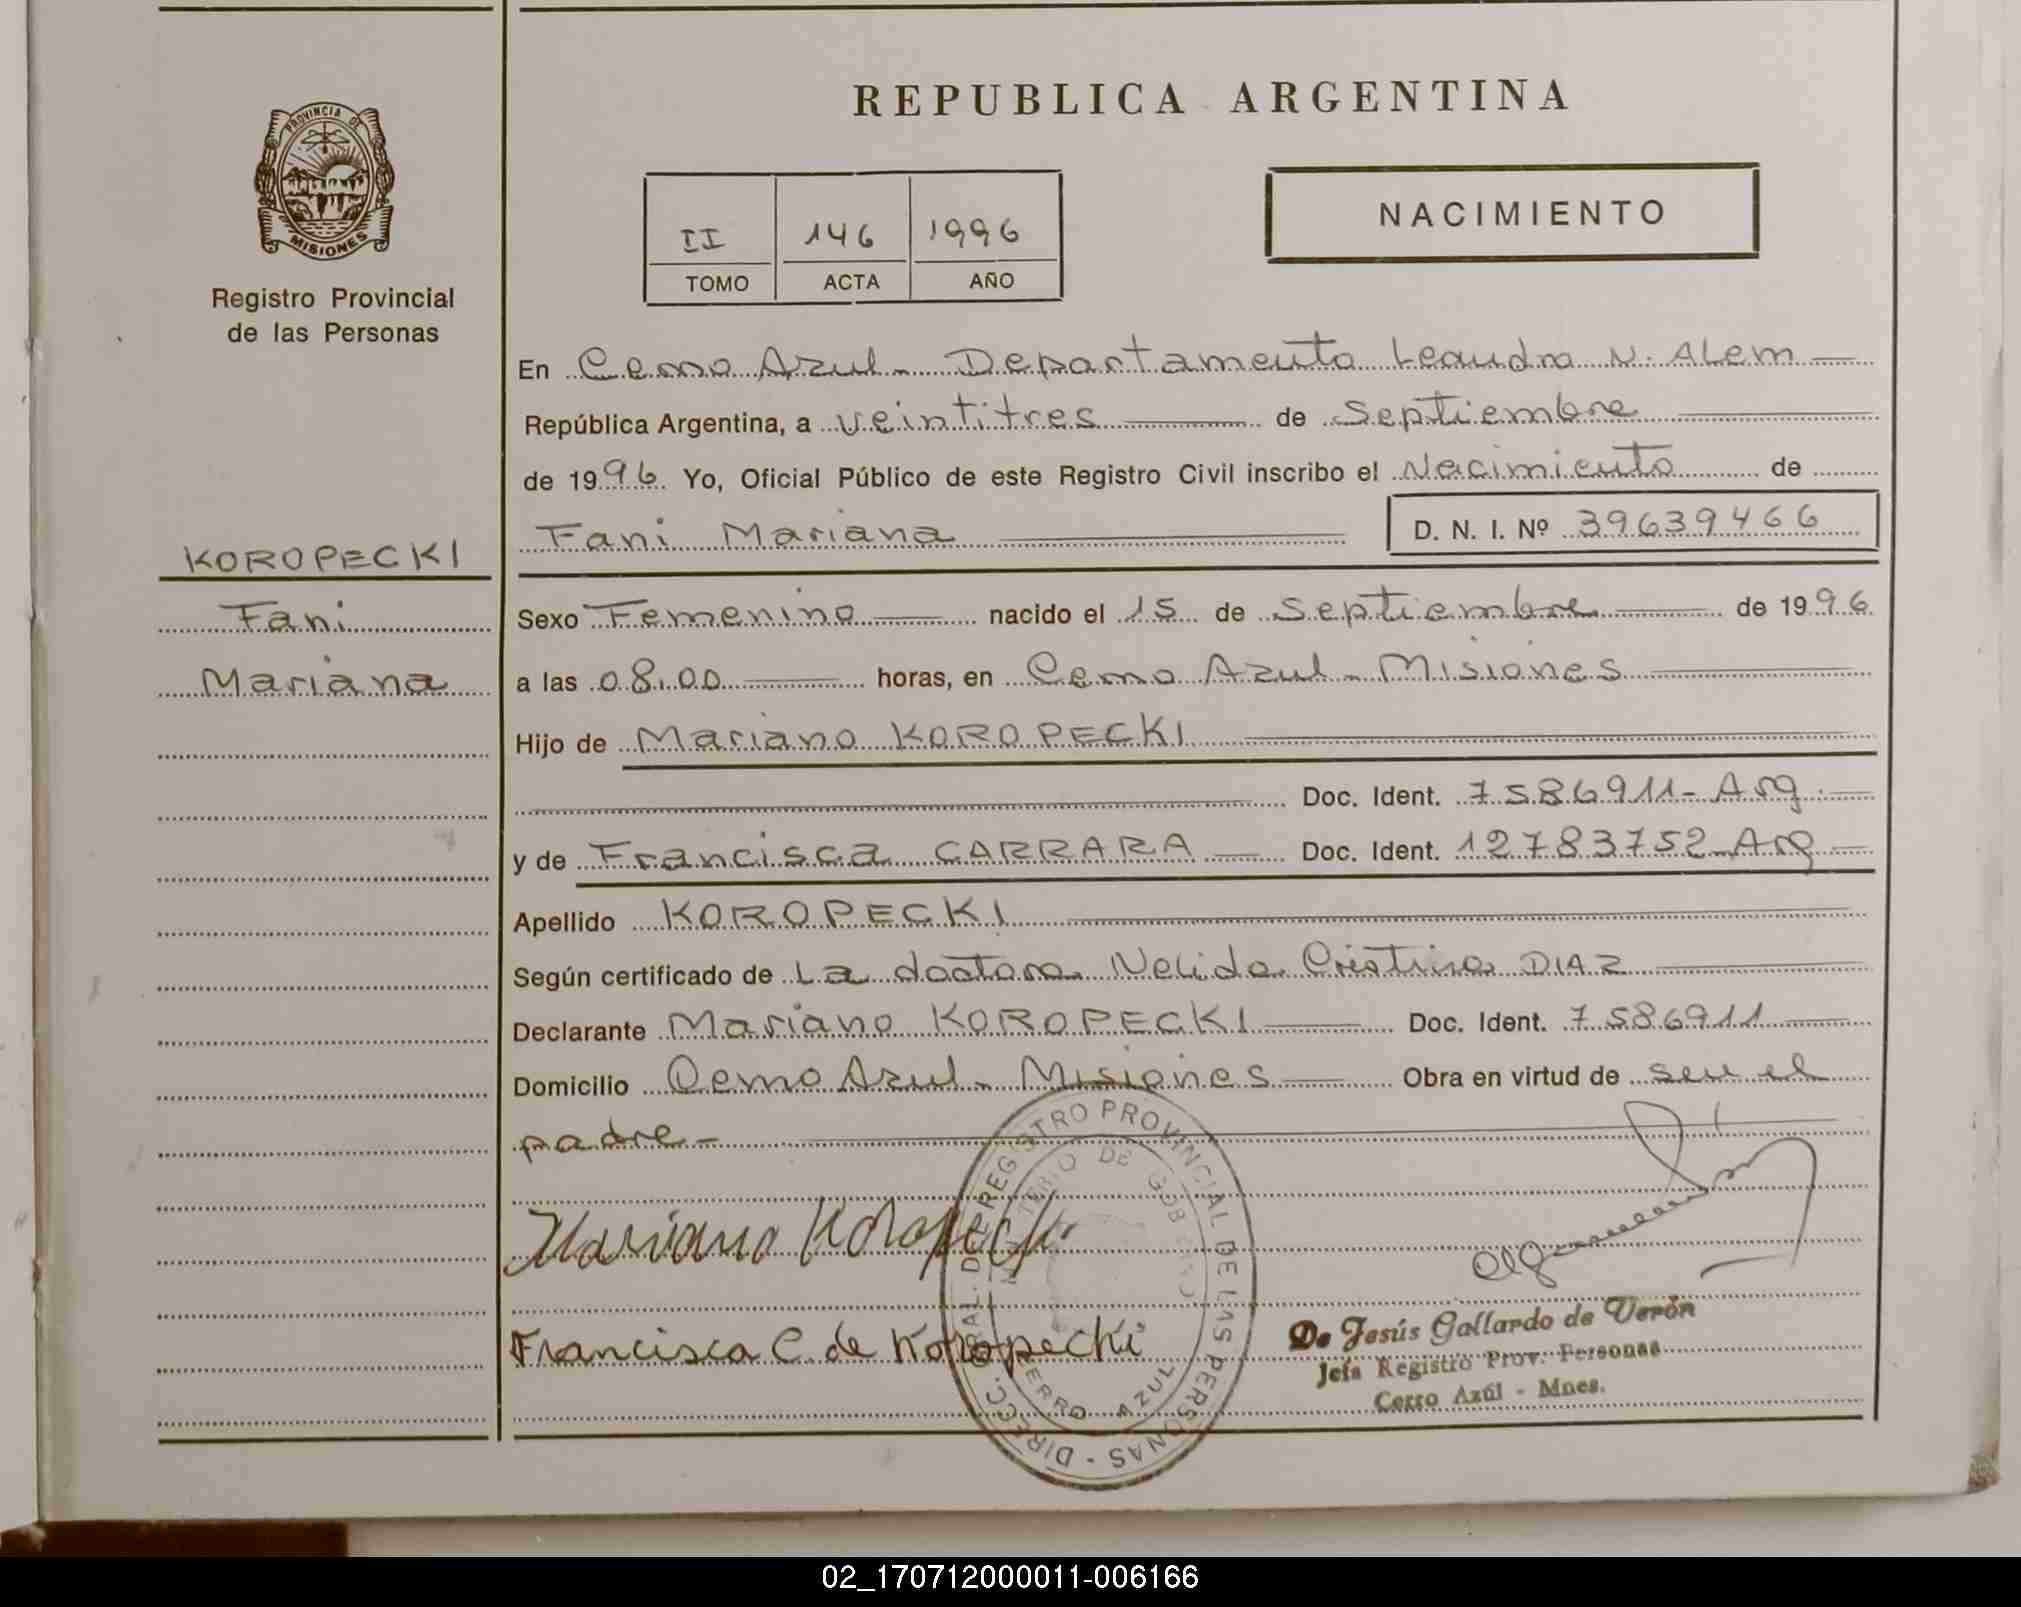 REPUBLICA ARGENTINA
PROVINCIA DE
MISIONES
Registro Provincial
de las Personas
II 146 1996
TOMO ACTA AÑO
NACIMIENTO
En Cerro Azul - Departamento Leandro N. ALem
República Argentina, a veintitres de Septiembre
de 1996. Yo, Oficial Público de este Registro Civil inscribo el Nacimiento de
Fani Mariana D. N. I. Nº 39639466
KOROPECKI
Fani
Mariana
Sexo Femenino nacido el 15 de Septiembre de 1996
a las 08.00 horas, en Cerro Azul - Misiones
Hijo de Mariano KOROPECKI
Doc. Ident. 7586911 - Arg
y de Francisca CARRARA Doc. Ident. 12783752 - Arg
Apellido KOROPECKI
Según certificado de La doctora Nelida Cristina DIAZ
Declarante Mariano KOROPECKI Doc. Ident. 7586911
Domicilio Cerro Azul - Misiones Obra en virtud de ser el
padre -
Mariano Koropecki
Francisca C. de Koropecki
DIRECC. GRAL. DE REGISTRO PROVINCIAL DE LAS PERSONAS -
MINISTERIO DE GOBIERNO
CERRO AZUL
De Jesús Gallardo de Verón
Jefa Registro Prov. Personas
Cerro Azúl - Mnes.
02_170712000011-006166